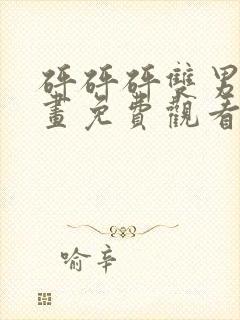 砰砰砰雙男
畫免費觀看
喻辛